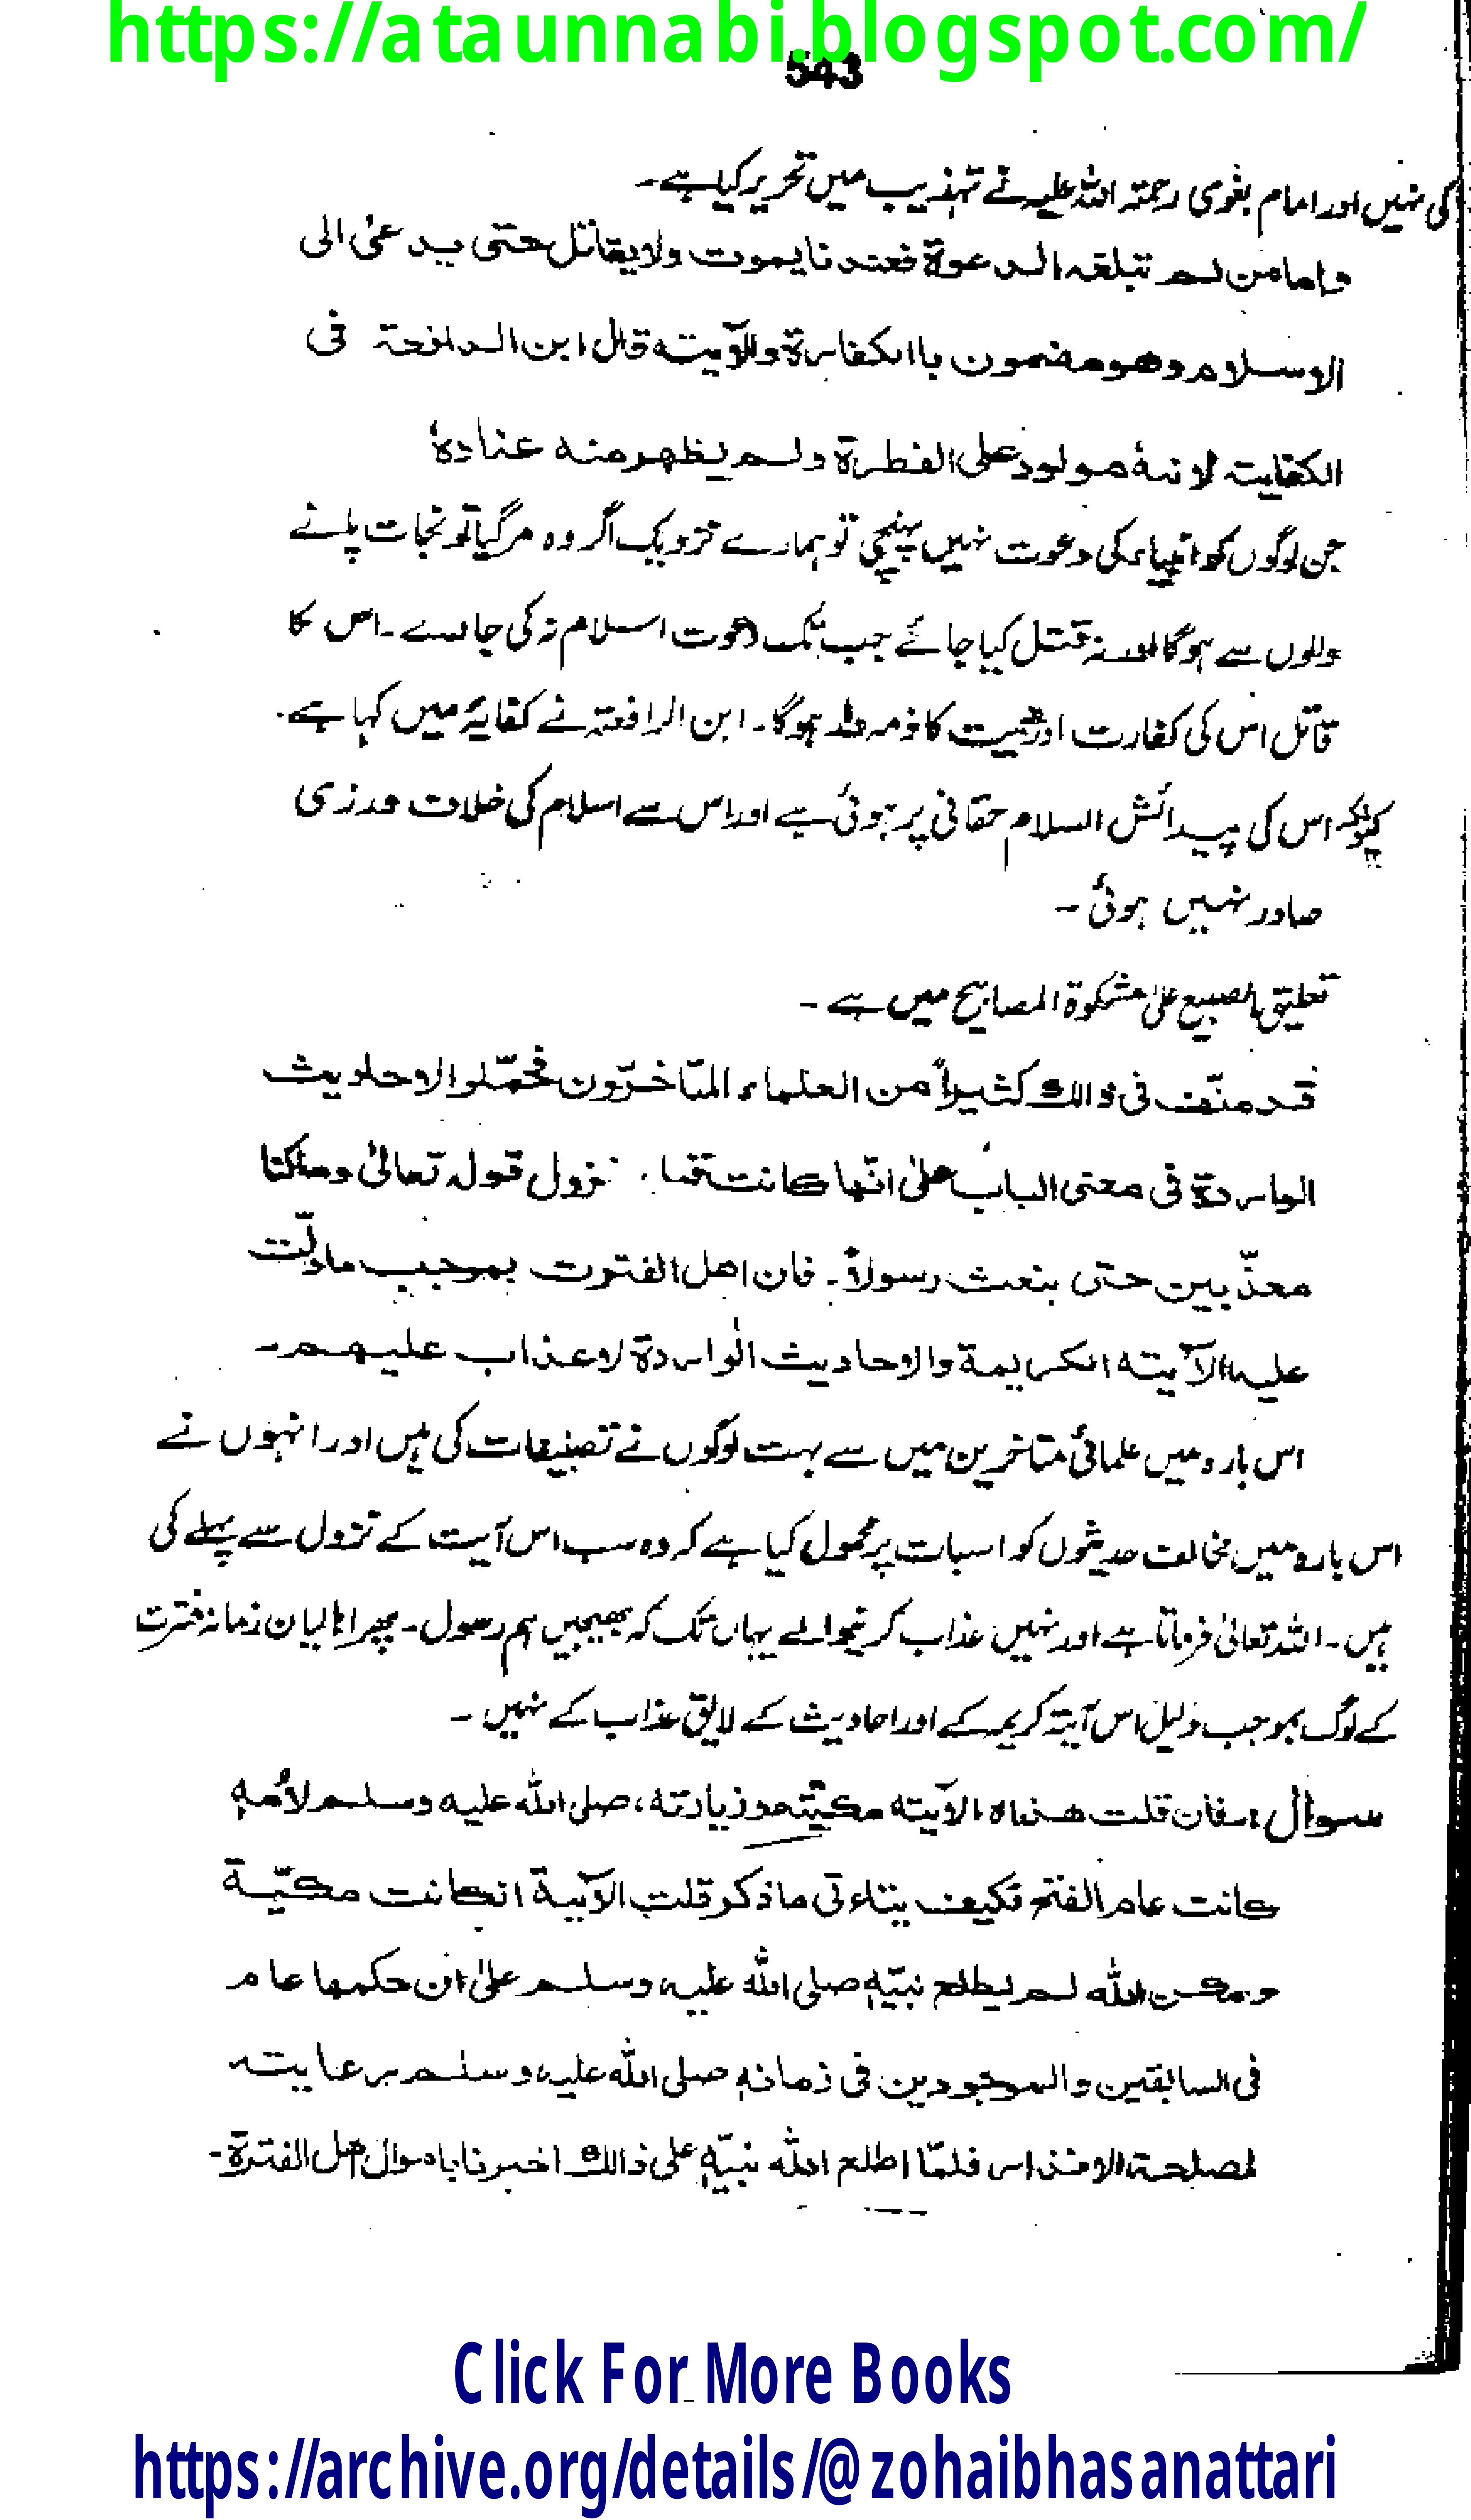 https://ataunnabi.blogspot.com/
543
کی نہیں اور امام بغوی رحمتہ اللہ علیہ نے تہذیب میں تحریر کیا ہے۔
واما من لم تبلغہ الدعوۃ فعندنا یموت ولا یقاتل حتی یدعیٰ الی
الاسلام وھو مضمون باالکفارۃ وللآیتہ قال ابن الدافعۃ فی
الکفایتہ لانہٗ مولود علی الفطرۃ ولم یظھر منہ عنادہٗ
جن لوگوں کو انبیاء کی دعوت نہیں پہنچی تو ہمارے نزدیک اگر وہ مر گیا تو نجات پانے
والوں سے ہوگا اور نہ قتل کیا جائے جب تک دعوت اسلام نہ کی جاوے۔ اس کا
قاتل اس کی کفارت اور کا ذمہ دار ہوگا۔ ابن الرافعۃ نے کفایۃ میں کہا ہے۔
کیونکہ اس کی پیدائش السلام حقانی پر ہوئی ہے اور اس سے اسلام کی خلاف ورزی
صادر نہیں ہوئی ۔
تعلیق الصبیح علیٰ مشکوۃ المصابیح میں ہے ۔
قد صنّف فی ذالک کثیراً من العلماء المتأخرّون فحمّلوا الاحادیث
الواردۃ فی معنی الباب علیٰ انّھا کانت نزول قولہ تعالیٰ وماکنا
معذّبین حتی بنعث رسولاً۔ فان اھل الفترت بموجب مادلّت
علیہ الآیتہ الکریمۃ والاحادیث الواردۃ لاعذاب علیھم۔
اس بارہ میں علمائی متاخرین میں سے بہت لوگوں نے تصنیفات کی ہیں اور انہوں نے
اس بارہ میں مخالف حدیثوں کو اسبات پر محمول کیا ہے کہ وہ سب اس آیت کے نزول سے پہلے کی
ہیں ۔ اللہ تعالیٰ فرماتا ہے اور نہیں عذاب کرنیوالے یہاں تک کہ بھیجیں ہم رسول ۔ پھر اہالیان زمانہ فترت
کے لوگ بموجب دلیل اس آیتہ کریمہ کے اور احادیث کے لایق عذاب کے نہیں ۔
سوال: فان قلت ھذہ الآیتہ مکیّتہ وزیارتہ، صلی اللہ علیہ وسلم لاُمّہٖ
کانت عام الفتح فکیف یتاءتی ماذکر قلت الآیۃ انکانت مکیّۃ
ولکن اللہ لم یطلع نبیّہٖ صلی اللہ علیہ وسلم علیٰ ان حکمھا عام
فی السابقین والموجودین فی زمانہٖ صلی اللہ علیہ وسلم برعایتہ
لمصلحۃ الانذار فلمّا اطلع اللہ نبیّہٖ علی ذالک اخبرنا باحوال اھل الفترۃ۔
Click For More Books
https://archive.org/details/@zohaibhasanattari